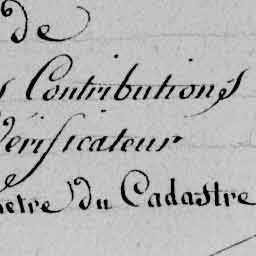 de
Contributions
Vérificateur
du Cadastre